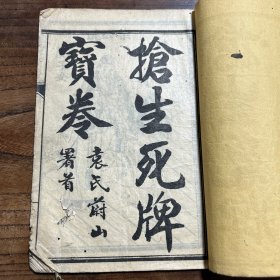 搶生死牌
寶卷
袁氏蔚山
署首